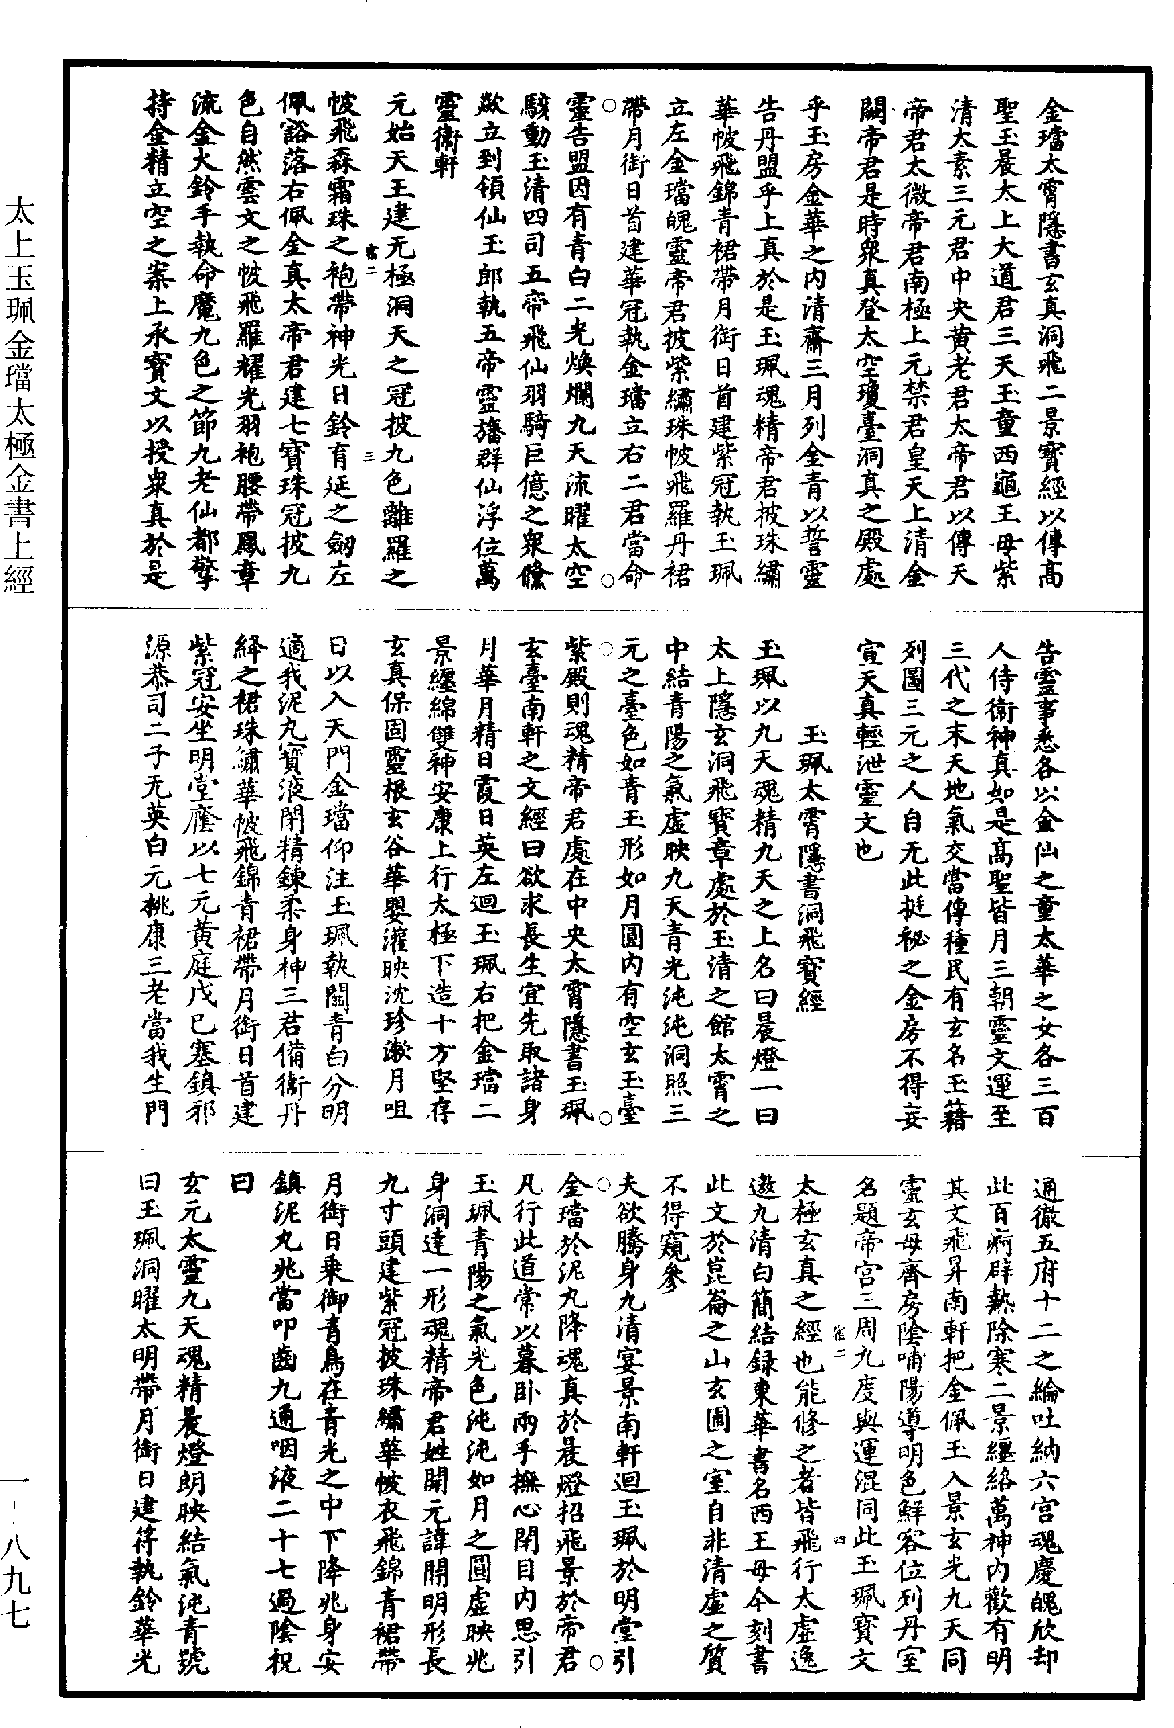 太上玉珮金璫太極金書上經
金璫太霄隱書玄真洞飛二景寶經以傳高
聖玉晨太上大道君三天玉童西龜王母紫
清太素三元君中央黃老君太帝君以傳天
帝君太微帝君南極上元禁君皇天上清金
闕帝君是時衆真登太空瓊臺洞真之殿處
乎玉房金華之内清齋三月列金青以誓靈
告丹盟乎上真於是玉珮魂精帝君被珠繡
華帔飛錦青裙帶月銜日首建紫冠執玉珮
立左金璫魄靈帝君披紫繡珠帔飛羅丹裙
帶月銜日首建華冠執金璫立右二君當命
靈告盟因有青白二光煥爛九天流曜太空
駭動玉清四司五帝飛仙羽騎巨億之衆儵
歘立到領仙玉郎執五帝靈旛群仙浮位萬
靈衛軒
元始天王建无極洞天之冠披九色離羅之
帔飛森霜珠之袍帶神光日鈴育延之劒左
佩豁落右佩金真太帝君建七寶珠冠披九
色自然雲文之帔飛羅耀光羽袍腰帶鳳章
流金火鈴手執命魔九色之節九老仙都擎
持金精立空之案上承寶文以授衆真於是
告靈事悉各以金仙之童太華之女各三百
人侍衛神真如是高聖皆月三朝靈文運至
三代之末天地氣交當傳種民有玄名玉籍
列圖三元之人自无此挺祕之金房不得妄
宣天真輕泄靈文也
玉珮太霄隱書洞飛寶經
玉珮以九天魂精九天之上名曰晨燈一曰
太上隱玄洞飛寶章處於玉清之館太霄之
中結青陽之氣虛映九天青光沌沌洞照三
元之臺色如青玉形如月圓内有空玄玉臺
紫殿則魂精帝君處在中央太霄隱書玉珮
玄臺南軒之文經曰欲求長生宜先取諸身
月華月精日霞日英左迴玉珮右把金璫二
景纏綿雙神安康上行太極下造十方堅存
玄真保固靈根玄谷華嬰灌映沈珍漱月咀
日以入天門金璫仰注玉珮執闔青白分明
適我泥丸寶液閉精鍊柔身神三君備衛丹
絳之裙珠繡華帔飛錦青裙帶月銜日首建
紫冠安坐明堂塵以七元黃庭戊巳塞鎮邪
源恭司二子无英白元桃康三老當我生門
通徹五府十二之綸吐納六宮魂慶魄欣却
此百痾辟熱除寒二景纏絡萬神内歡有明
其文飛昇南軒把金佩玉入景玄光九天同
靈玄母齊房陰哺陽導明色鮮容位列丹室
名題帝宮三周九度與運混同此玉珮寶文
太極玄真之經也能修之者皆飛行太虛逸
遨九清白簡結録東華書名西王母今刻書
此文於崑崙之山玄圃之室自非清虛之質
不得窺參
夫欲騰身九清宴景南軒迴玉珮於明堂引
金璫於泥丸降魂真於晨燈招飛景於帝君
凡行此道常以暮卧兩手撫心閉目内思引
玉珮青陽之氣光色沌沌如月之圓虛映兆
身洞達一形魂精帝君姓開元諱開明形長
九寸頭建紫冠披珠繡華帔衣飛錦青裙帶
月銜日乘御青鳥在青光之中下降兆身安
鎮泥丸兆當叩齒九通咽液二十七過陰祝
曰
玄元太靈九天魂精晨燈朗映結氣沌青號
曰玉珮洞曜太明帶月銜日建符執鈴華光
一-八九七